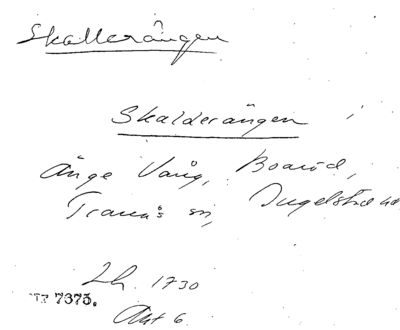 Skallerången
Skalderången
Änge Vång, Boaröd,
Tranås sn, Ingelstad hd
Lh. 1730
7375.
Akt 6